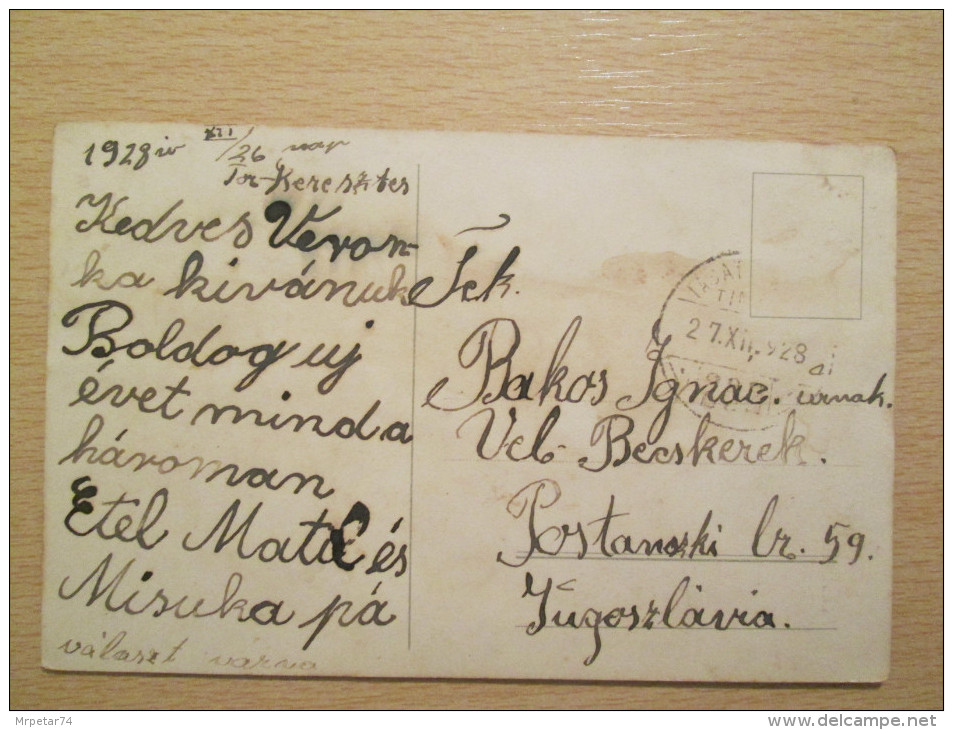 1928 iv XII/26 nap
Tor-Keresztes
Kedves Veron-
ka kivánuk
Boldog uj
évet mind a
hároman
Etel Mata és
Misuka pá
választ várva
Tek.
Bakos Ignac. úrnak.
Vel-Becskerek.
Postanszki br. 59.
Jugoszlávia.
27.XII.928
Mrpetar74
www.delcampe.net